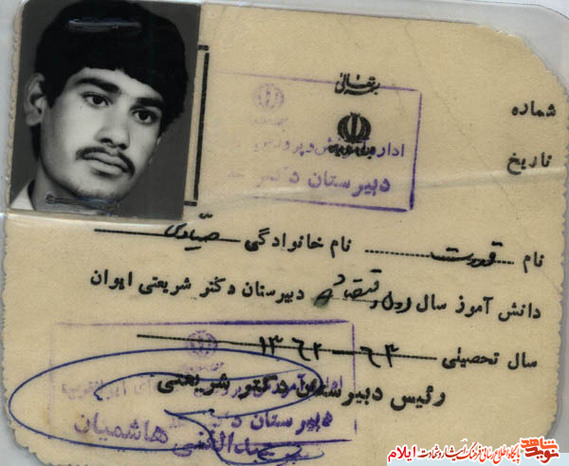 بسمه تعالی
شماره
تاریخ
اداره آموزش و پرورش
دبیرستان دکتر
نام قدرت نام خانوادگی صیادی
دانش آموز سال اول اقتصاد دبیرستان دکتر شریعتی ایوان
سال تحصیلی ۶۳ - ۱۳۶۲
رئیس دبیرستان دکتر شریعتی
دبیرستان دکتر
هاشمیان
نوید شاهد
پایگاه اطلاع رسانی فرهنگ ایثار و شهادت ایلام